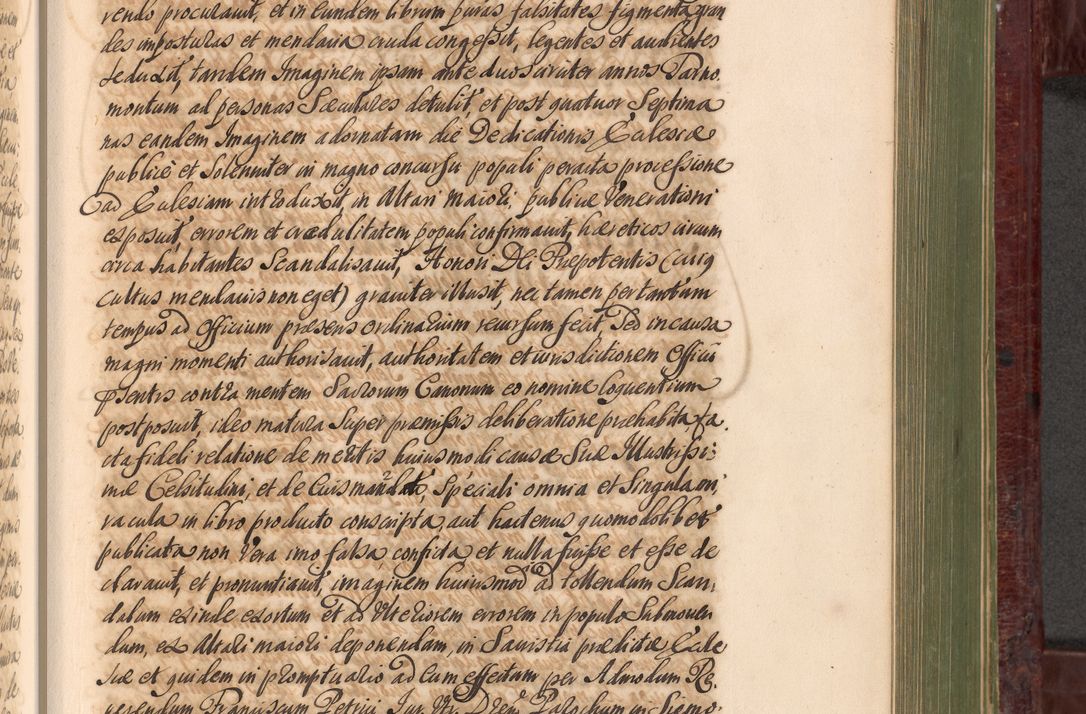 rendo procuravit, et in eundem librum puras falsitates figmenta gran
des imposturas et mendacia cruda congessit, legentes et audientes
seduxit, tandem Imaginem ipsam ante duos circiter annos Patno.
montum ad personas Sæculares detulit, et post quatuor Septima
nas eandem Imaginem adornatam die Dedicationis Ecclesiæ
publicè et Solenniter in magno concursu populi peracta processione
ad Ecclesiam introduxit, in Altari maiori, publicæ Venerationi
exposuit, errorem et credulitatem populi confirmavit, hæreticos circum
circa habitantes Scandalisavit, Honori DEi Præpotentis (cuius
cultus mendaciis non eget) graviter illusit, nec tamen per tantum
tempus ad Officium præsens ordinarium recursum fecit, Sed in causa
magni momenti authorisavit, authoritatem et iurisdictionem Officii
pñsentis contra mentem Sacrorum Canonum eo nomine loquentium
postposuit, ideo matura Super præmissis deliberatione præhabita, fa.
cta fideli relatione de meritis huiusmodi causæ Suæ Illustrissi:
mæ Celsitudini, et de Eius mandato, Speciali omnia et Singula mi
racula in libro producto conscripta, aut hactenus quomodolibet
publicata non Vera imo falsa conficta et nulla fuisse et esse de
claravit, et pronuntiavit, imaginem huiusmodi ad tollendum Scan,
dalum exinde exortum et ad Ulteriorem errorem in populo Submoven
dum, ex Altari maiori deponendam, in Sacristia prædictæ Eccle
siæ et quidem in promptuario ad Eum effectum per Admodum Re,
verendum Franciscum Petrici Iur. Utr. Drem Parochum in Siemo: